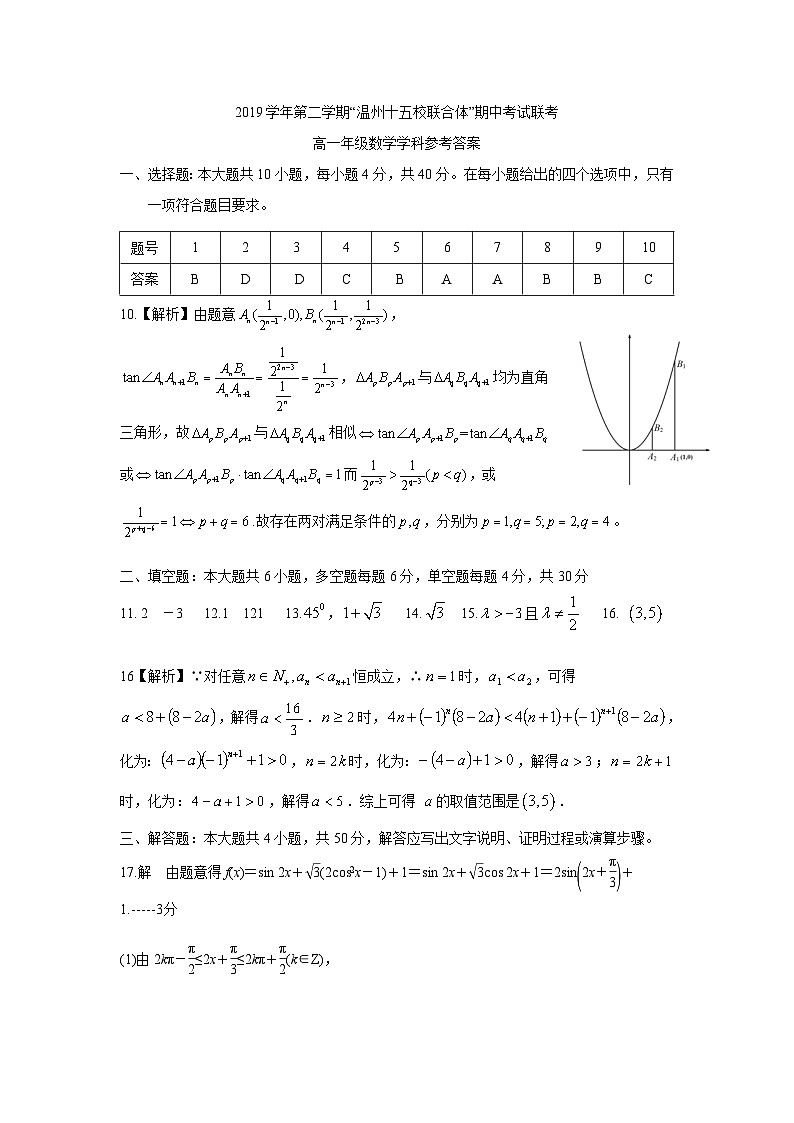 2019学年第二学期“温州十五校联合体”期中考试联考
高一年级数学学科参考答案
一、选择题:本大题共10小题，每小题4分，共40分。在每小题给出的四个选项中，只有
一项符合题目要求。
题号 1 2 3 4 5 6 7 8 9 10
答案 B D D C B A A B B C
10.【解析】由题意 A_n(1/2^{n-1},0), B_n(1/2^{n-1},1/2^{2n-3})，
tan∠A_nA_{n+1}B_n = A_nB_n/A_nA_{n+1} = (1/2^{2n-3})/(1/2^n) = 1/2^{n-3}，ΔA_pB_pA_{p+1}与ΔA_qB_qA_{q+1}均为直角
三角形，故ΔA_pB_pA_{p+1}与ΔA_qB_qA_{q+1}相似⇔tan∠A_pA_{p+1}B_p=tan∠A_qA_{q+1}B_q
或⇔tan∠A_pA_{p+1}B_p·tan∠A_qA_{q+1}B_q=1而 1/2^{p-3} > 1/2^{q-3}(p<q)，或
1/2^{p+q-6}=1⇔p+q=6.故存在两对满足条件的p,q，分别为p=1,q=5;p=2,q=4。
B_1
B_2
A_2 A_1(1,0)
二、填空题：本大题共6小题，多空题每题6分，单空题每题4分，共30分
11. 2 －3 12.1 121 13.45^0，1+√3 14.√3 15.λ>-3且λ≠1/2 16. (3,5)
16【解析】∵对任意n∈N_+,a_n<a_{n+1}恒成立，∴n=1时，a_1<a_2，可得
a<8+(8-2a)，解得a<16/3．n≥2时，4n+(-1)^n(8-2a)<4(n+1)+(-1)^{n+1}(8-2a)，
化为：(4-a)(-1)^{n+1}+1>0，n=2k时，化为：-(4-a)+1>0，解得a>3；n=2k+1
时，化为：4-a+1>0，解得a<5．综上可得 a的取值范围是(3,5)．
三、解答题：本大题共4小题，共50分，解答应写出文字说明、证明过程或演算步骤。
17.解 由题意得f(x)＝sin 2x＋√3(2cos²x－1)＋1＝sin 2x＋√3cos 2x＋1＝2sin(2x＋π/3)＋
1.-----3分
(1)由 2kπ－π/2≤2x＋π/3≤2kπ＋π/2(k∈Z)，